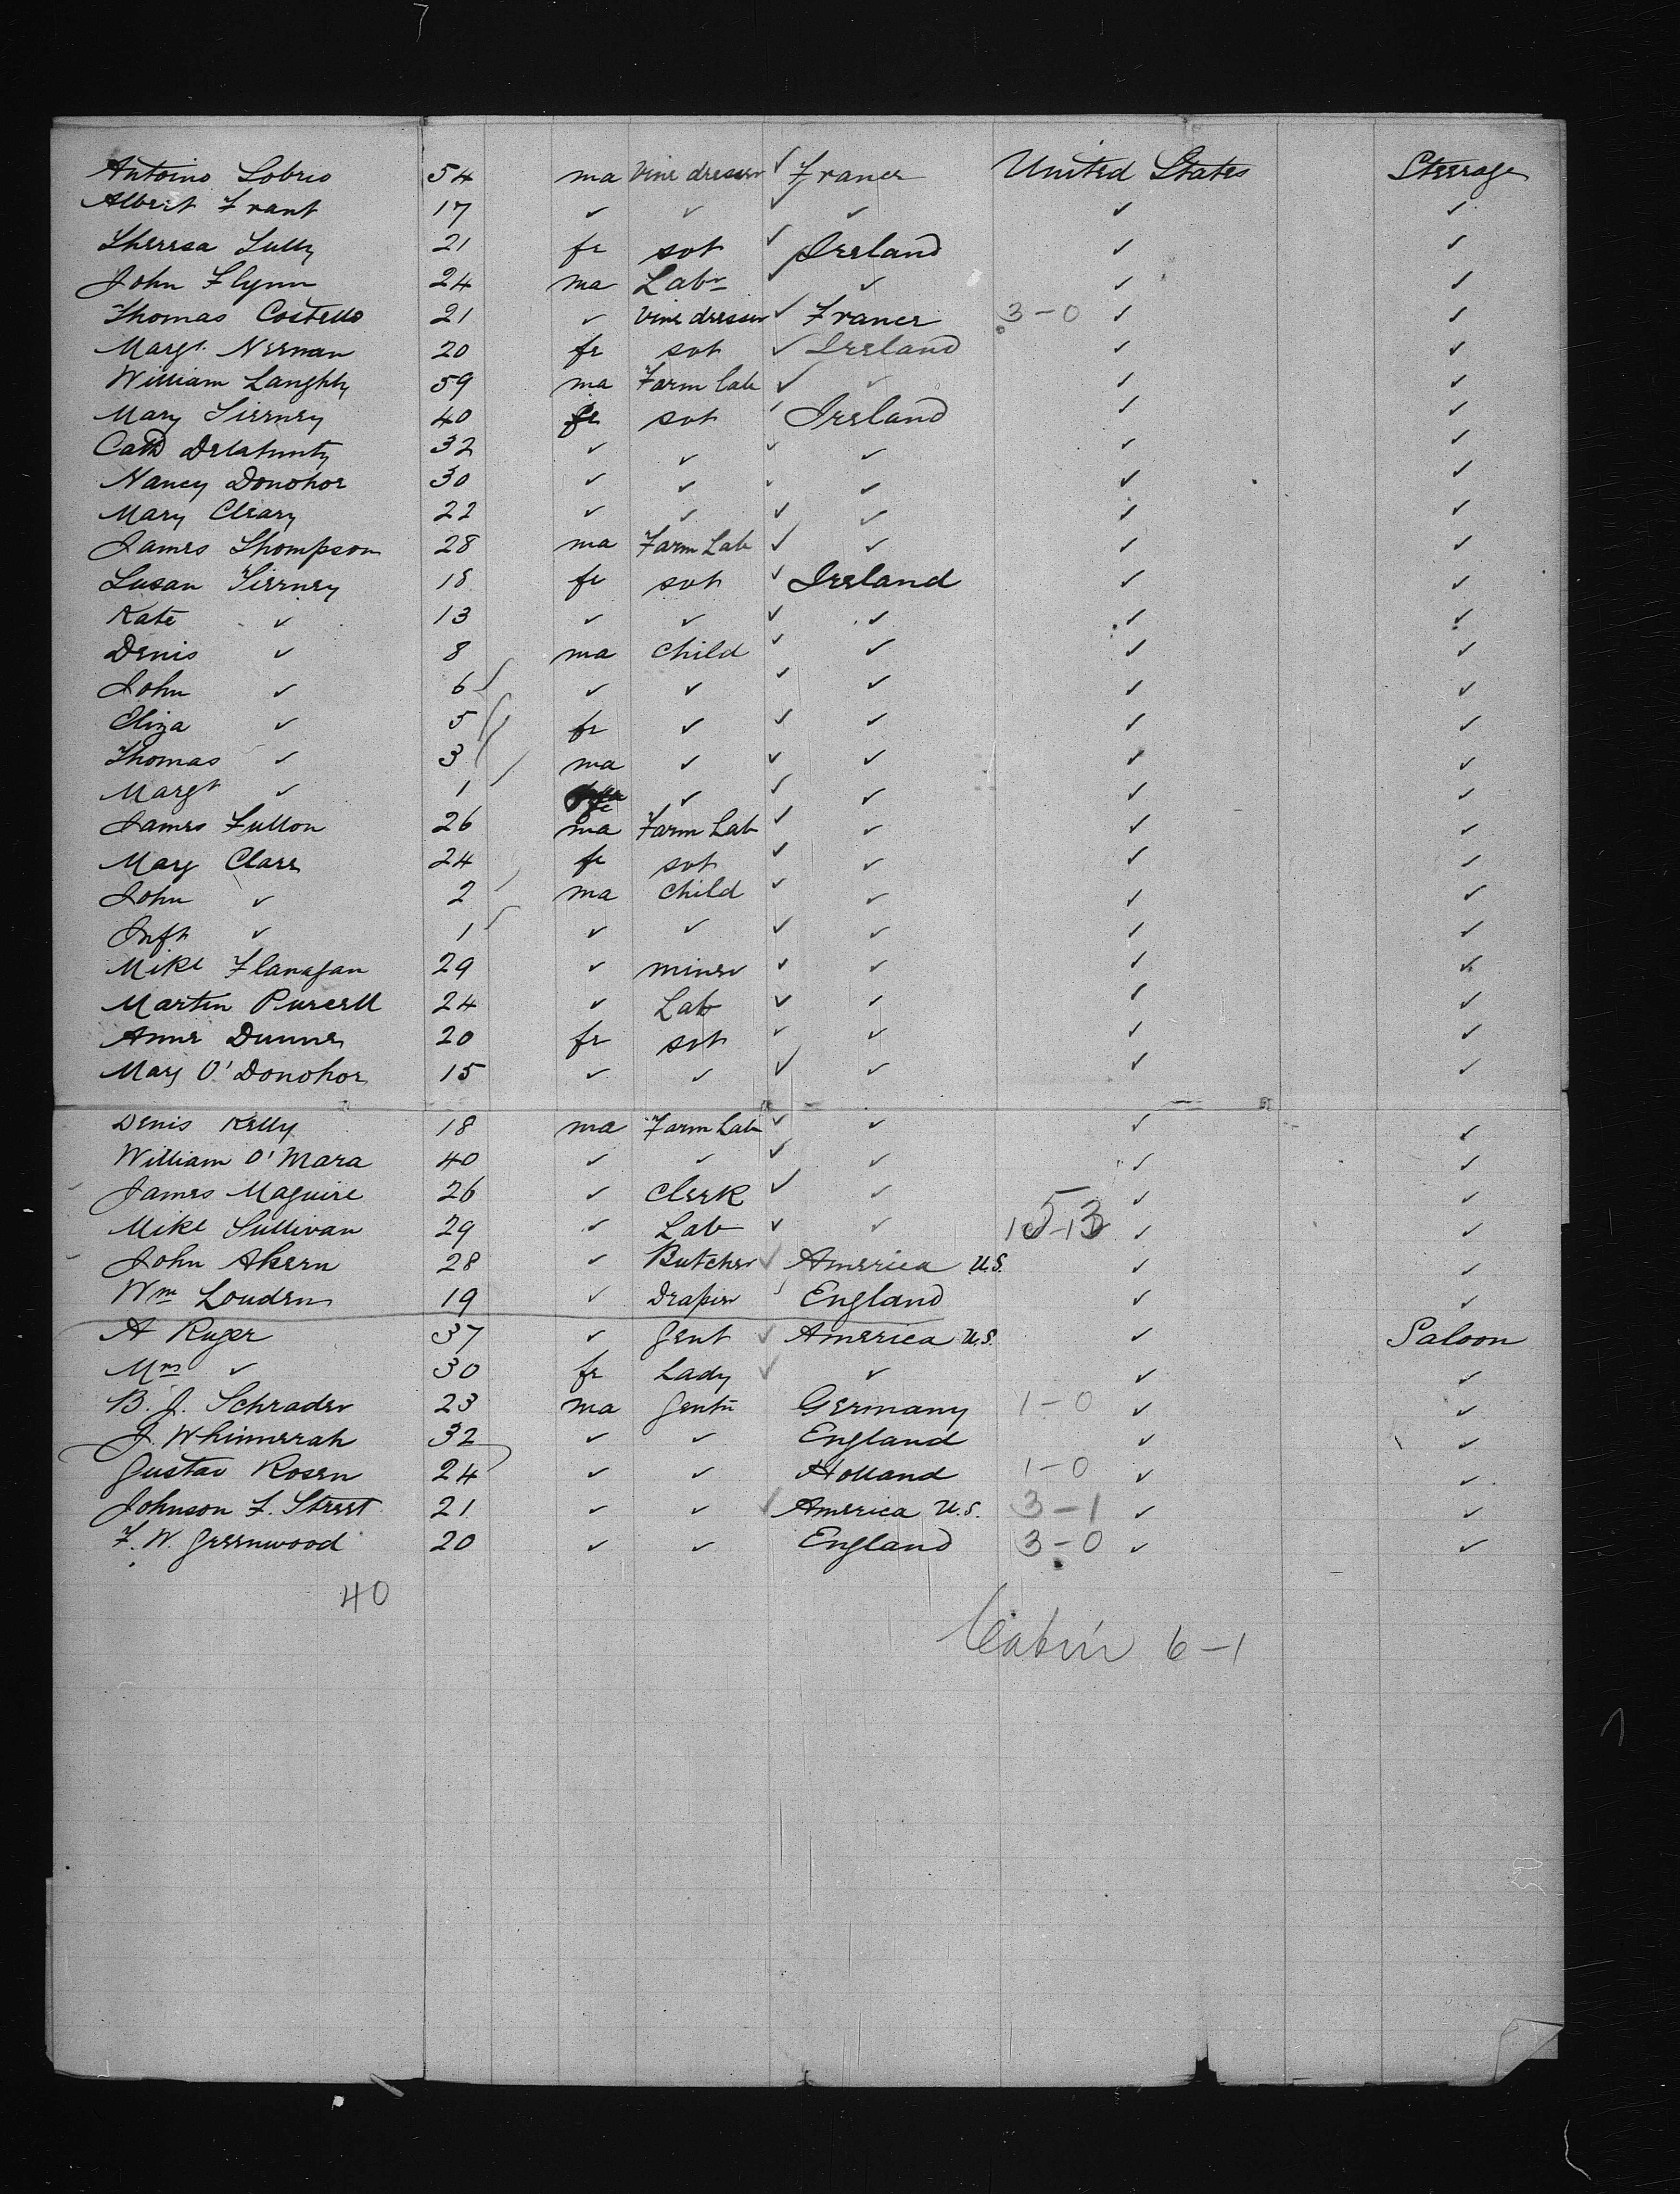 Antoino Lobrio 54 ma Vine dresser ✓ France United States Steerage
Albert Frant 17 ✓ ✓ ✓ ✓ ✓ ✓
Theresa Tully 21 fe svt ✓ Ireland ✓ ✓
John Flynn 24 ma Labr ✓ ✓ ✓ ✓
Thomas Costello 21 ✓ Vine dresser ✓ France 3-0 ✓ ✓
Margt. Neenan 20 fe svt ✓ Ireland ✓ ✓
William Langhly 59 ma Farm Lab ✓ ✓ ✓ ✓
Mary Tierney 40 fe svt ✓ Ireland ✓ ✓
Cath Delahunty 32 ✓ ✓ ✓ ✓ ✓ ✓
Nancy Donohoe 30 ✓ ✓ ✓ ✓ ✓
Mary Cleary 22 ✓ ✓ ✓ ✓ ✓ ✓
James Thompson 28 ma Farm Lab ✓ ✓ ✓ ✓
Susan Tierney 18 fe svt ✓ Ireland ✓ ✓
Kate ✓ 13 ✓ ✓ ✓ ✓ ✓ ✓
Denis ✓ 8 ma child ✓ ✓ ✓ ✓
John ✓ 6 ✓ ✓ ✓ ✓ ✓ ✓
Eliza ✓ 5 fe ✓ ✓ ✓ ✓ ✓
Thomas ✓ 3 ma ✓ ✓ ✓ ✓ ✓
Margt ✓ 1 fe ✓ ✓ ✓ ✓ ✓
James Fullon 26 ma Farm Lab ✓ ✓ ✓ ✓
Mary Clare 24 fe svt ✓ ✓ ✓ ✓
John ✓ 2 ma child ✓ ✓ ✓ ✓
Inft ✓ 1 ✓ ✓ ✓ ✓ ✓ ✓
Mike Flanagan 29 ✓ miner ✓ ✓ ✓ ✓
Martin Purcell 24 ✓ Lab ✓ ✓ ✓ ✓
Anne Dunne 20 fe svt ✓ ✓ ✓ ✓
Mary O'Donohoe 15 ✓ ✓ ✓ ✓ ✓ ✓
Denis Kelly 18 ma Farm Lab ✓ ✓ ✓ ✓
William O'Mara 40 ✓ ✓ ✓ ✓ ✓ ✓
James Maguire 26 ✓ Clerk ✓ ✓ ✓ ✓
Mike Sullivan 29 ✓ Lab ✓ ✓ 15-13 ✓ ✓
John Ahern 28 ✓ Butcher ✓ America U.S. ✓ ✓
Wm Louden 19 ✓ Draper ✓ England ✓ ✓
A Ruger 37 ✓ Gent ✓ America U.S. ✓ Saloon
Mrs ✓ 30 fe Lady ✓ ✓ ✓ ✓
B. J. Schrader 23 ma Gentn Germany 1-0 ✓ ✓
J. Whinnerah 32 ✓ ✓ England ✓ ✓
Gustav Rosen 24 ✓ ✓ Holland 1-0 ✓ ✓
Johnson F. Street 21 ✓ ✓ ✓ America U.S. 3-1 ✓ ✓
F. W. Greenwood 20 ✓ ✓ England 3-0 ✓ ✓
40
Cabin 6-1